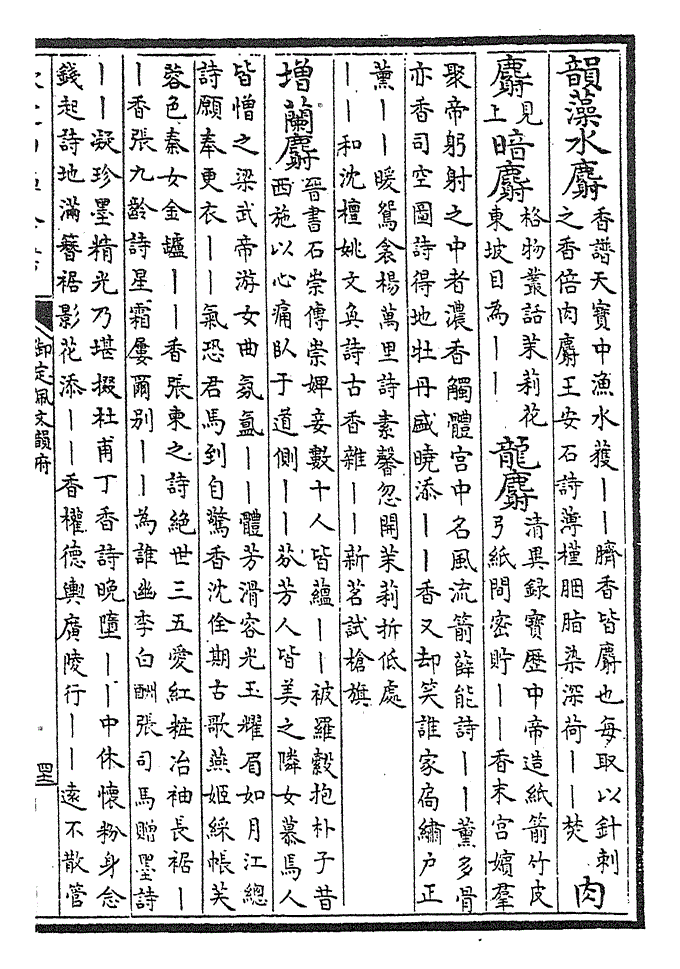 韻藻水麝香譜天寶中漁水獲||臍香皆麝也每取以針刺
之香倍肉麝王安石詩薄槿胭脂染深荷||焚 肉
麝見上 暗麝格物叢話茉莉花
東坡目為|| 龍麝清異録寶歴中帝造紙箭竹皮
弓紙間密貯||香末宮嬪羣
聚帝躬射之中者濃香觸體宮中名風流箭薛能詩||薰多骨
亦香司空圖詩得地牡丹盛曉添||香又却笑誰家扃繡户正
薰||暖鴛衾楊萬里詩素馨忽開茉莉拆低處
||和沈檀姚文奐詩古香雜||新茗試槍旗
增蘭麝晉書石崇傳崇婢妾數十人皆蘊||被羅縠抱朴子昔
西施以心痛卧于道側||芬芳人皆美之隣女慕焉人
皆憎之梁武帝游女曲氛氲||體芳滑容光玉耀眉如月江總
詩願奉更衣||氣恐君馬到自驚香沈佺期古歌燕姬綵帳芙
蓉色秦女金爐||香張柬之詩絕世三五愛紅粧冶袖長裾|
|香張九齡詩星霜屢爾别||為誰幽李白酬張司馬贈墨詩
||凝珍墨精光乃堪掇杜甫丁香詩晚墮||中休懷粉身念
錢起詩地滿簪裾影花添||香權德輿廣陵行||遠不散管
御定佩文韻府